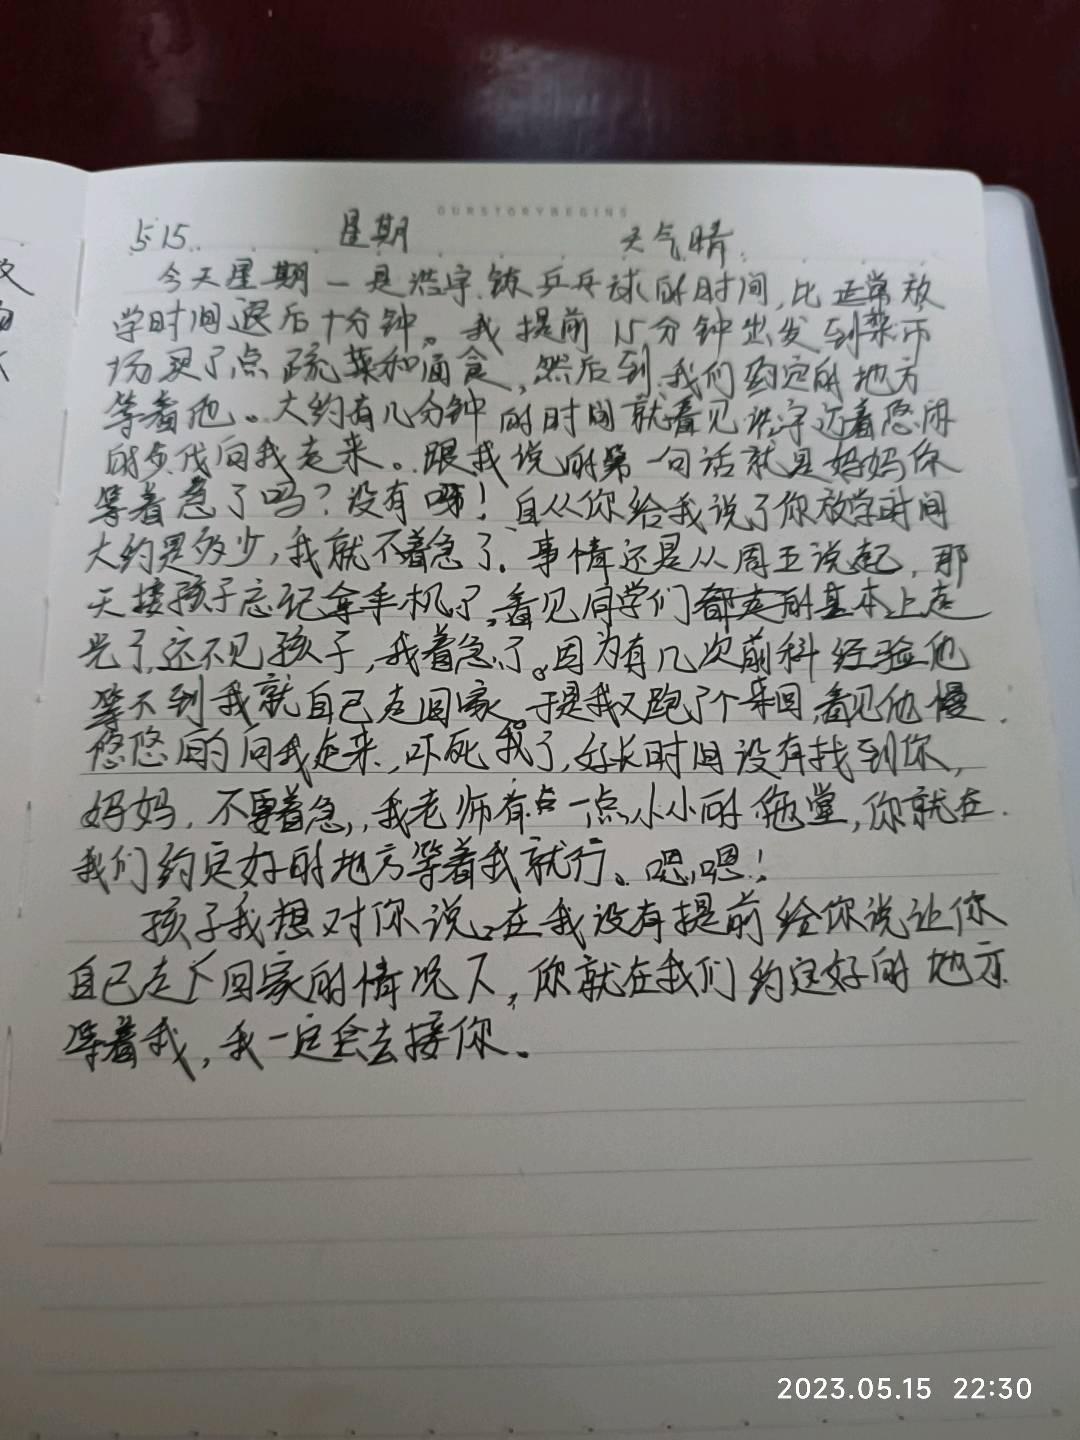 OURSTORYBEGINS
5.15. 星期 天气晴.
今天星期一是浩宇练乒乓球的时间,比正常放
学时间退后十分钟。我提前15分钟出发到菜市
场买了点疏菜和面食,然后到我们约定的地方
等着他。大约有几分钟的时间就看见浩宇迈着悠闲
的步伐向我走来。跟我说的第一句话就是妈妈你
等着急了吗?没有呀!自从你给我说了你放学时间
大约是多少,我就不着急了.事情还是从周五说起,那
天接孩子忘记拿手机了,看见同学们都走的基本上走
光了,还不见孩子,我着急了。因为有几次前科经验他
等不到我就自己走回家。于是我又跑了个来回,看见他慢
悠悠的向我走来,吓死我了,好长时间没有找到你,
妈妈,不要着急,我老师有点一点小小的拖堂,你就在
我们约定好的地方等着我就行。嗯嗯!
孩子我想对你说,在我没有提前给你说让你
自己走下回家的情况下,你就在我们约定好的地方
等着我,我一定会去接你。
2023.05.15 22:30
文
的